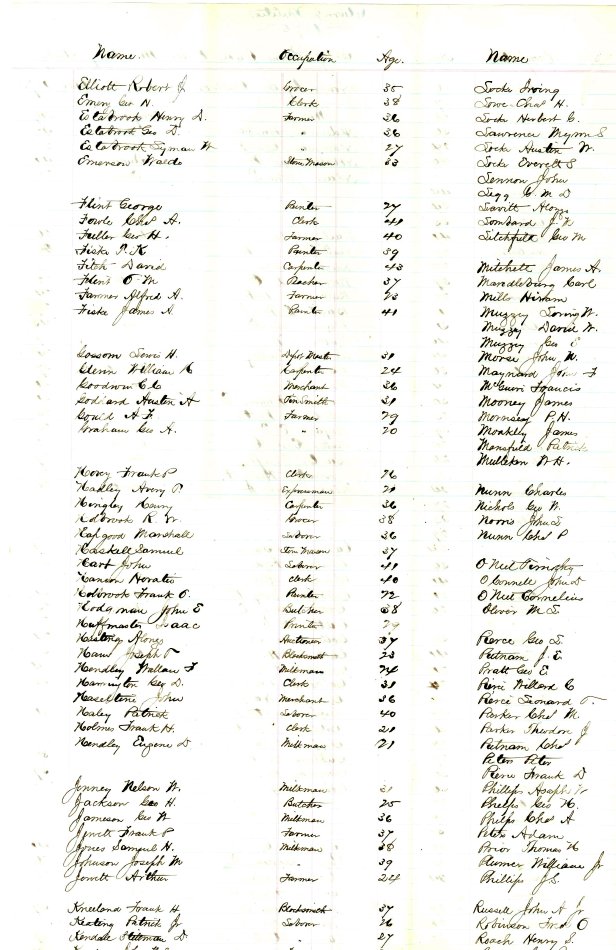 Name Occupation Age. Name
Elliott Robert J Grocer 35
Emery Geo N. Clerk 38
Estabrook Henry D. Farmer 36
Estabrook Geo D. " 36
Estabrook Lyman W " 27
Emerson Waldo Stone Mason 33
Flint George Painter 27
Fowle Chas A. Clerk 41
Fuller Geo H. Farmer 40
Fiske P. K Painter 39
Fitch David Carpenter 43
Flint O M 37
Farmer Alfred A. Farmer 23
Fiske James A Painter 41
Gossom Lewis H. Depot Master 31
Glenn William K Carpenter 24
Goodwin C C Merchant 36
Goddard Austin A Tin Smith 31
Gould A F. Farmer 29
Graham Geo A. " 20
Hovey Frank P Clerk 26
Hadley Avery P. Expressman 21
Hingley Harry Carpenter 36
Holbrook R. W. Grocer 38
Hapgood Marshall Laborer 36
Haskell Samuel Stone Mason 37
Hart John Laborer 41
Hanion Horatio Clerk 40
Holbrook Frank O. Painter 22
Hodgman John E Butcher 38
Huffmaster Isaac Printer 29
Hasting Alonzo 37
Haw Joseph T Blacksmith 23
Hendley Wallace F Milkman 24
Harrington Geo D. Clerk 31
Haseltine John Merchant 36
Haley Patrick Laborer 40
Holmes Frank H. Clerk 21
Hendley Eugene D Milkman 21
Jenney Nelson W. Milkman 31
Jackson Geo H. Butcher 25
Jameson Geo W Milkman 36
Jewett Frank P Farmer 37
Jones Samuel H. Milkman 38
Johnson Joseph M " 39
Jewett Arthur Farmer 24
Kneeland Frank H Blacksmith 37
Keating Patrick Jr Laborer 26
Kendall Stillman D " 27
Locke Irving
Lowe Chas H.
Locke Herbert C.
Lawrence Myron S
Locke Austin W.
Locke Everett S
Lennon John
Legg C. M D
Leavitt Alonzo
Lombard J. F
Litchfield Geo M
Mitchell James A.
Mandleburg Carl
Mills Hiram
Muzzey Loring W.
Muzzey David W.
Muzzey Geo E
Morse John N.
Maynard John F
McGuire Francis
Mooney James
Mornsey P. H.
Moakley James
Mansfield Patrick
Mulliken W H.
Nunn Charles
Nichols Geo W.
Norris John S
Nunn Chas P
O Neil Timothy
O Connell John D
O Neil Cornelius
Oliver M S
Pierce Geo S.
Putnam J. E.
Pratt Geo E
Pierce Willard C
Pierce Leonard T.
Parker Chas M.
Parker Theodore J
Putnam Chas
Peters Peter
Pierce Frank D
Phillips Asaph
Phelps Geo H.
Phelps Chas A
Peters Adam
Prior Thomas H
Plumer William Jr
Phillips J S.
Russell John A Jr
Robinson Fred O
Roach Henry S.